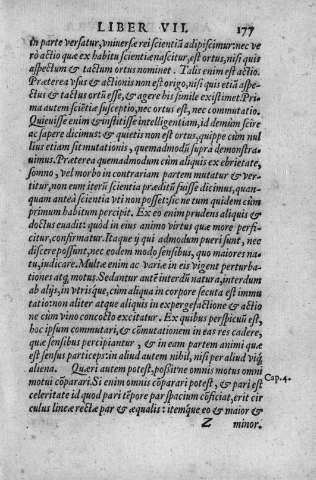 LIBER VII. 177
in parte versatur, vniuersæ rei scientiā adipiscimur: nec ve
rò actio quæ ex habitu scientiæ nascitur, est ortus, nisi quis
aspectum & tactum ortus nominet. Talis enim est actio.
Præterea vsus & actionis non est origo, nisi quis etiā aspe
ctus & tactus ortū esse, & agere his simile existimet. Pri
ma autem sciētiæ susceptio, nec ortus est, nec commutatio.
Quieuisse enim & institisse intelligentiam, id demùm scire
ac sapere dicimus: & quietis non est ortus, quippe cùm nul
lius etiam sit mutationis, quemadmodū suprà demonstra
uimus. Præterea quemadmodum cùm aliquis ex ebrietate,
somno, vel morbo in contrariam partem mutatur & ver
titur, non eum iterū scientia præditū fuisse dicimus, quan
quam anteà scientia vti non posset: sic ne tum quidem cùm
primum habitum percipit. Ex eo enim prudens aliquis &
doctus euadit: quòd in eius animo virtus quæ more perfi
citur, confirmatur. Itaque ij qui admodum pueri sunt, nec
discere possunt, nec eodem modo sensibus, quo maiores na
tu, iudicare. Multæ enim ac variæ in eis vigent perturba
tiones atq; motus. Sedantur autē interdū natura, interdum
ab alijs, in vtrisque, cùm aliqua in corpore secuta est immu
tatio: non aliter atque aliquis in expergefactione & actio
ne cùm vino concocto excitatur. Ex quibus perspicuū est,
hoc ipsum commutari, & cōmutationem in eas res cadere,
quæ sensibus percipiantur, & in eam partem animi quæ
est sensus particeps: in aliud autem nihil, nisi per aliud viā
aliena. Quæri autem potest, possit ne omnis motus omni
motui cōparari. Si enim omnis cōparari potest, & pari est Cap. 4.
celeritate id quod pari tēpore par spacium cōficiat, erit cir
culus lineæ rectæ par & æqualis: itemq́ue eo & maior &
Z minor.